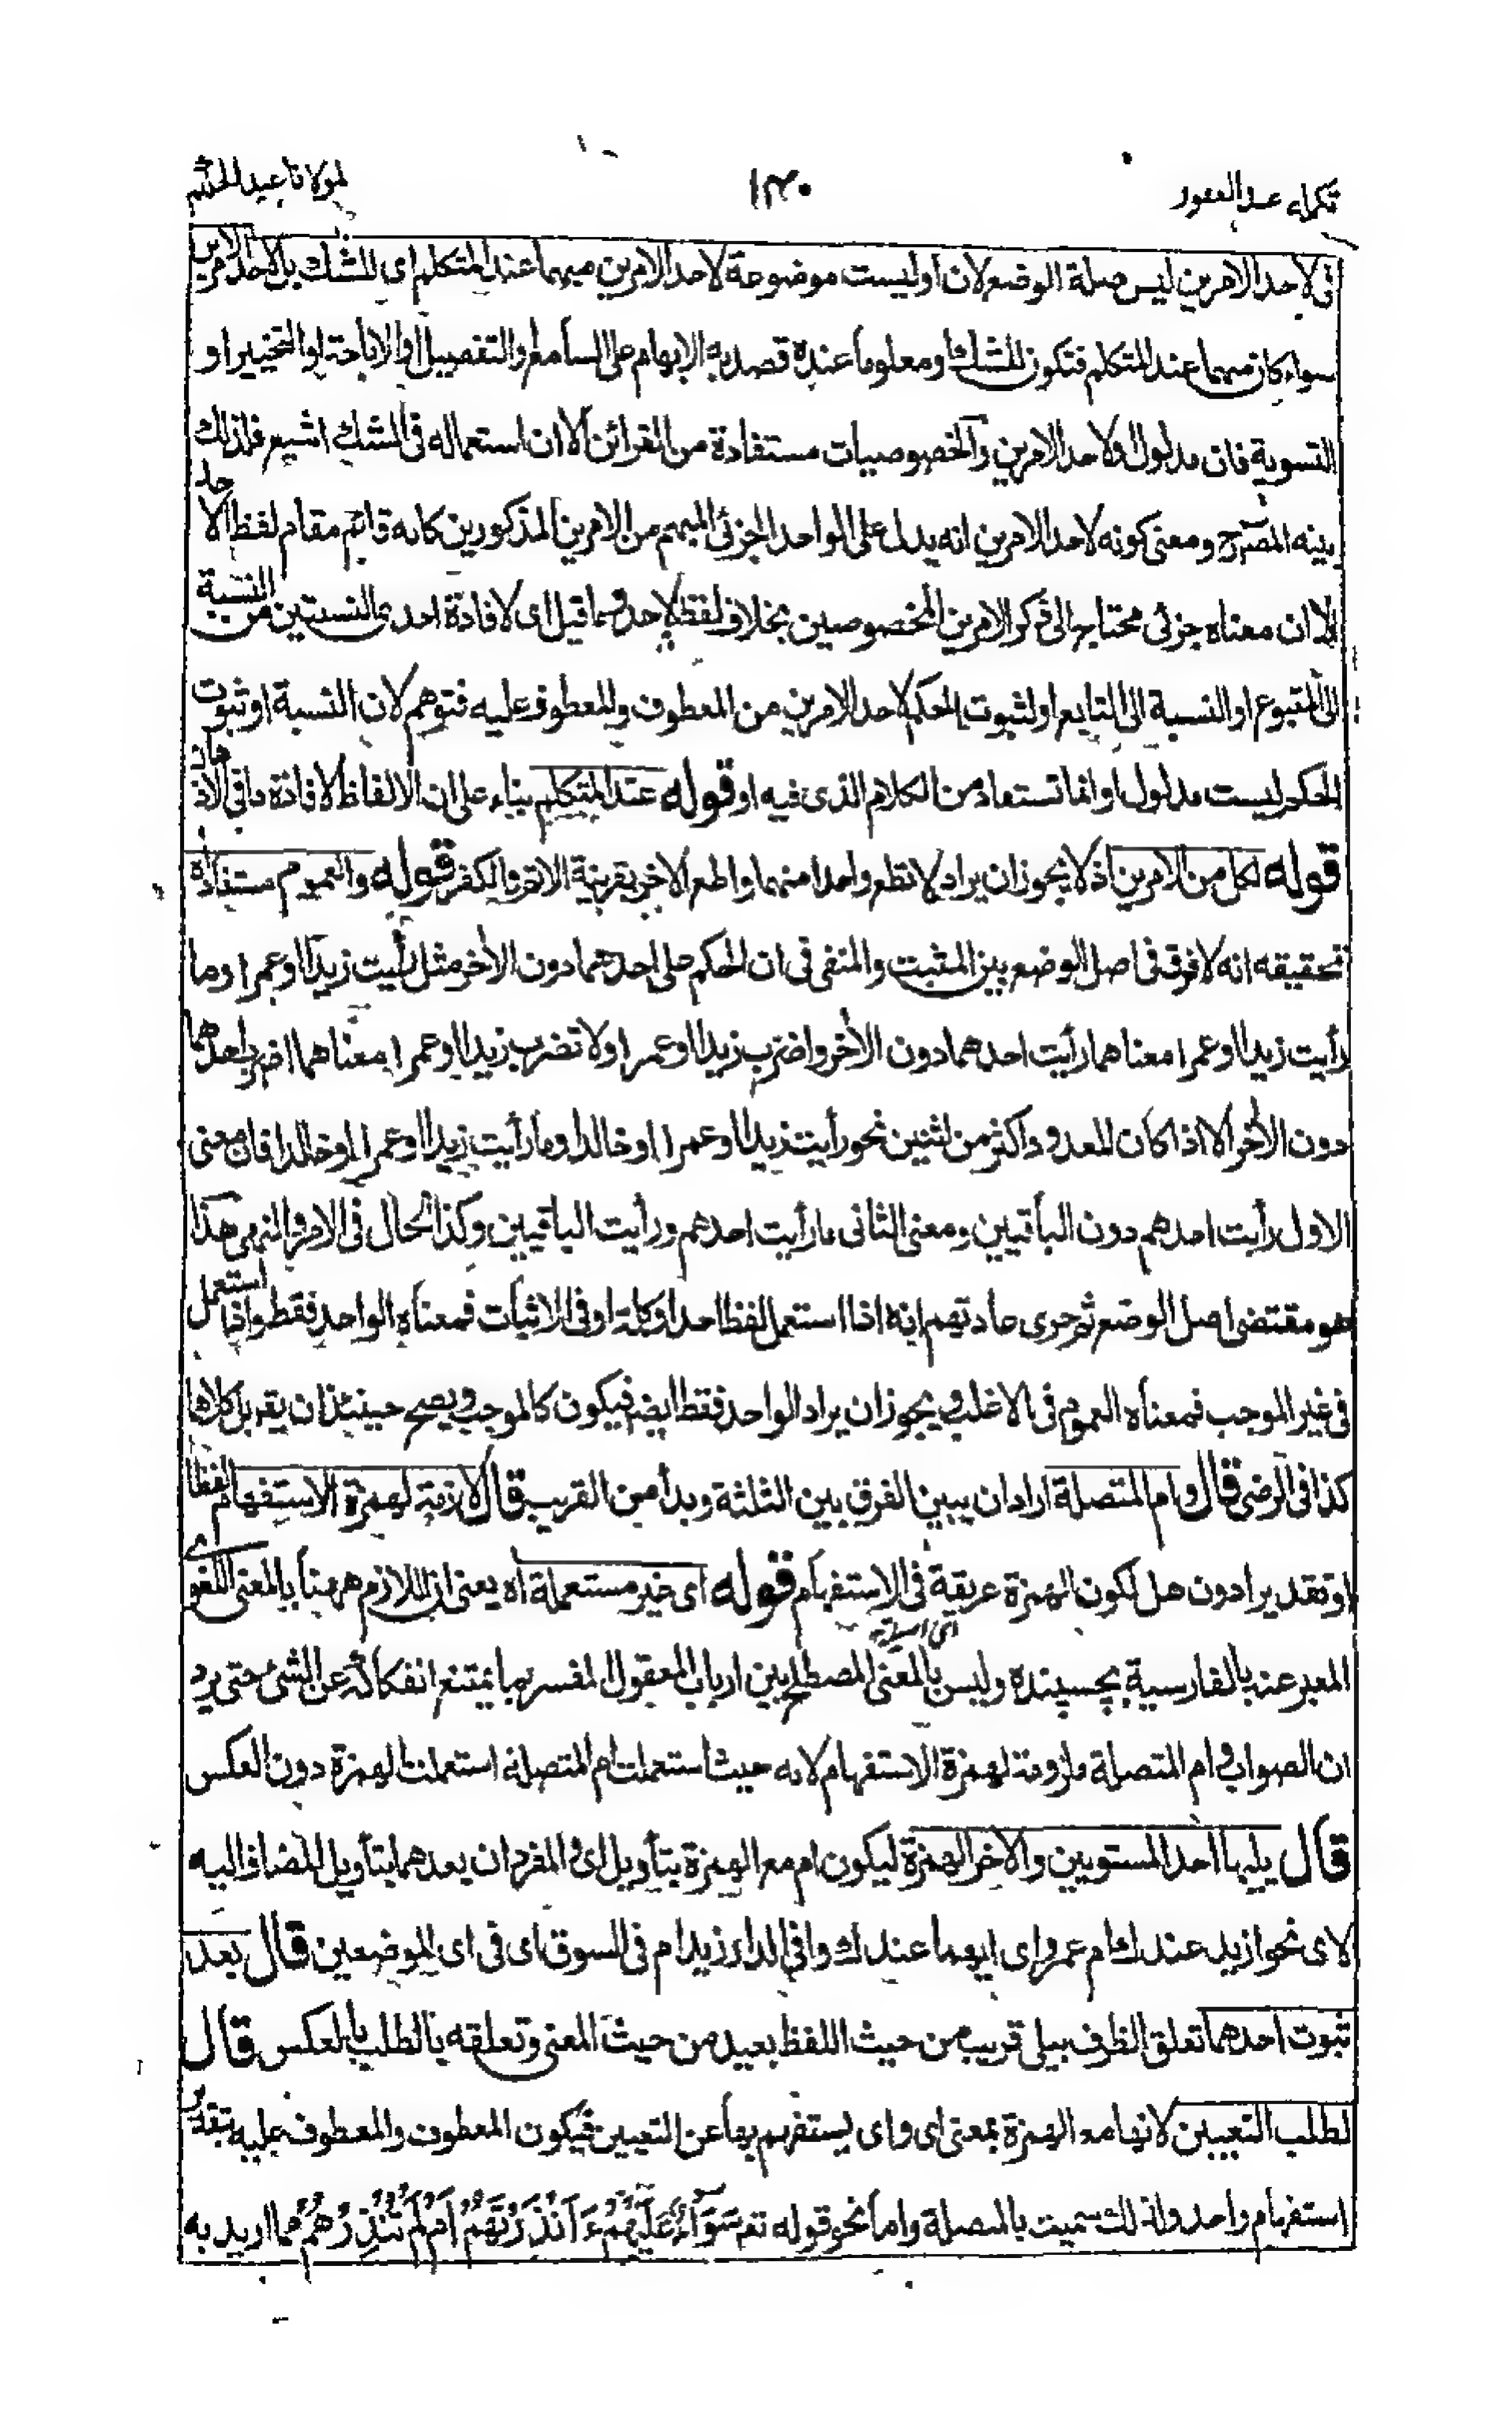 تكملہ عبد الغفور ١٣٠ لمولانا عبد الحكيم
فى لاحد الامرين ليس صلة الوضع لان او ليست موضوعة لاحد الامرين مبهما عند المتكلم اى للشك بل لاحد الامرين
سواء كان مبهما عند المتكلم فتكون للشك او معلوما عنده قصد به الابهام على السامع او التفصيل او الاباحة او التخيير او
التسوية فان مدلول او لاحد الامرين والخصوصيات مستفادة من القرائن الا ان استعماله فى الشك اشيع فلذلك
بينه المصرح ومعنى كونه لاحد الامرين انه يدل على الواحد الجزئى المبهم من الامرين المذكورين كانه قائم مقام لفظ الاحد
الا ان معناه جزئى محتاج الى ذكر الامرين المخصوصين بخلاف لفظ الاحد وما قيل اى لافادة احدى النسبتين من النسبة
الى المتبوع او النسبة الى التابع او لثبوت الحكم لاحد الامرين من المعطوف والمعطوف عليه فتوهم لان النسبة او ثبوت
الحكم ليست مدلول او انما تستفاد من الكلام الذى فيه او قوله عند المتكلم بناء على ان الالفاظ لافادة ما فى الاذهان
قوله لكل من الامرين اذ لا يجوز ان يراد لا تطع واحدا منهما واطع الاخر بقرينة الاثم والكفر قوله والعموم مستفادة
تحقيقه انه لا فرق فى اصل الوضع بين المثبت والمنفى فى ان الحكم على احدهما دون الاخر مثل رأيت زيدا او عمرا وما
رأيت زيدا او عمرا معناهما رأيت احدهما دون الاخر واضرب زيدا او عمرا ولا تضرب زيدا او عمرا معناهما اضرب احدهما
دون الاخر الا اذا كان المعدود اكثر من اثنين نحو رأيت زيدا او عمرا او خالدا وما رأيت زيدا او عمرا او خالدا فان معنى
الاول رأيت احدهم دون الباقيين ومعنى الثانى ما رأيت احدهم ورأيت الباقيين وكذا الحال فى الامر والنهى هذا
هو مقتضى اصل الوضع ثم جرى عادتهم انه اذا استعمل لفظ احد او كلمة او فى الاثبات فمعناه الواحد فقط واذا استعمل
فى غير الموجب فمعناه العموم فى الاغلب ويجوز ان يراد الواحد فقط ايضم فيكون كالموجب ويصح حينئذ ان يقو بل كلاهما
كذا فى الرضى قال وام المتصلة اراد ان يبين الفرق بين الثلثة وبدأ من القريب قال لازمة لهمزة الاستفهام لفظا
او تقديرا دون هل لكون الهمزة عريقة فى الاستفهام قوله اى غير مستعملة اه يعنى ان اللازم ههنا بالمعنى اللغوى
المعبر عنه بالفارسية بچسپنده وليس بالمعنى المصطلح بين ارباب المعقول المفسر بما يمتنع انفكاكه عن الشئ حتى يرد
ان الصواب وام المتصلة ملزومة لهمزة الاستفهام لانه حيث استعملت ام المتصلة استعملت الهمزة دون العكس
قال يليها احد المستويين والاخر الهمزة ليكون ام مع الهمزة بتأويل اى المفردان بعدهما بتأويل المضاف اليه
لاى نحو ازيد عندك ام عمرو اى ايهما عندك وافى الدار زيد ام فى السوق اى فى اى الموضعين قال بعد
ثبوت احدهما تعلق الظرف بيلى قريب من حيث اللفظ بعيد من حيث المعنى وتعلقه بالطلب بالعكس قال
لطلب التعيين لانها مع الهمزة بمعنى اى واى يستفهم بها عن التعيين فيكون المعطوف والمعطوف عليه بتقدير
استفهام واحد ولذلك سميت بالمتصلة واما نحو قوله تع سَوَآءٌ عَلَيْهِمْ ءَاَنْذَرْتَهُمْ اَمْ لَمْ تُنْذِرْهُمْ مما اريد به